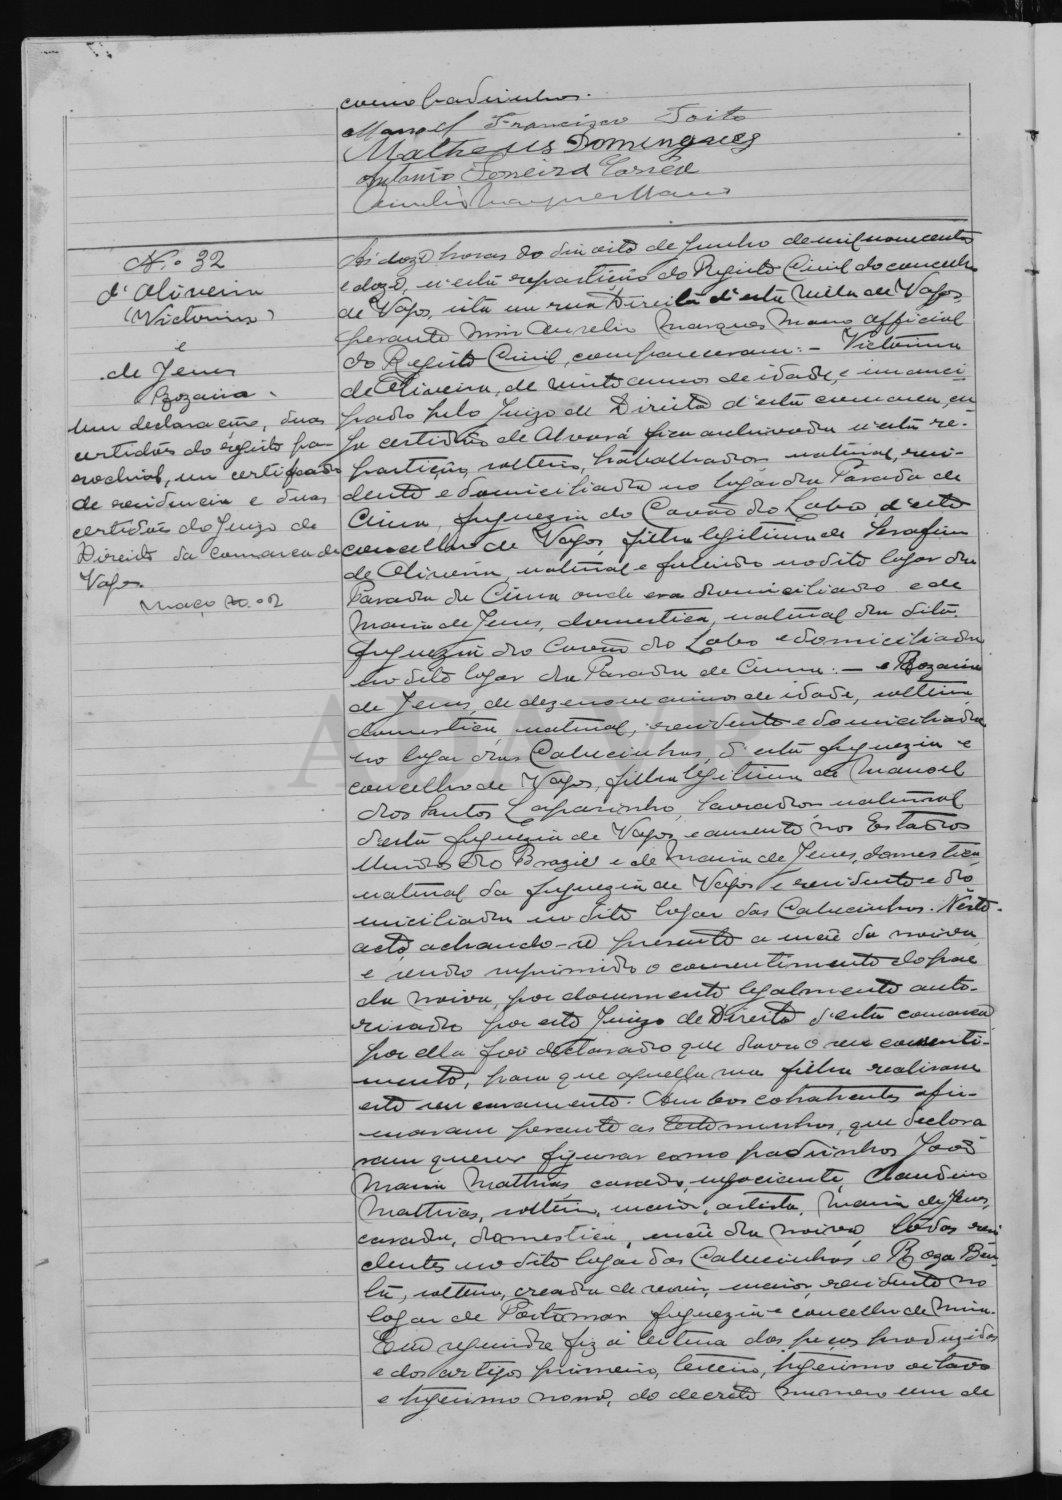 como padrinhos.
Manoel Francisco Toito
Matheus Domingues
Antonio Ferreira
Aurelio Marques Mano
N.º 32
d'Oliveira
(Victorino)
e
de Jesus
Rozaria.
Uma declaração, duas
certidões do registo pa-
rochial, um certificado
de residencia e duas
certidões do Juizo de
Direito da comarca de
Vagos.
Maço n.º 2
Ás doze horas do dia oito de Junho de mil novecentos
e doze, n'esta repartição do Registo Civil do concelho
de Vagos, sita na rua Direita d'esta villa de Vagos,
perante mim Aurelio Marques Mano official
do Registo Civil, compareceram: – Victorino
de Oliveira, de vinte annos de idade, e emanci-
pado pelo Juizo de Direito d'esta comarca, cu-
ja certidão de Alvará fica archivada n'esta re-
partição, solteiro, trabalhador natural, resi-
dente e domiciliado no logar da Parada de
Cima, freguezia do Covão do Lobo, d'este
concelho de Vagos, filho legitimo de Serafim
de Oliveira, natural e fallecido no dito logar da
Parada de Cima onde era domiciliado e de
Maria de Jesus, domestica, natural da dita
freguezia do Covão do Lobo e domiciliada
no dito logar da Parada de Cima: – e Rozaria
de Jesus, de dezenove annos de idade, solteira
domestica, natural, residente e domiciliada
no logar das Calucinhas, d'esta freguezia e
concelho de Vagos, filha legitima de Manoel
dos Santos, lavrador natural
d'esta freguezia de Vagos e ausente nos Estados
Unidos do Brazil e de Maria de Jesus, domestica
natural da freguezia de Vagos e residente e do-
miciliada no dito logar das Calucinhas. N'este
acto, achando-se presente a mãe da noiva
e sendo supprimido o consentimento do pae
da noiva, por documento legalmente auto-
risado por este Juizo de Direito d'esta comarca
por ella foi declarado que dava o seu consenti-
mento, para que aquella sua filha realisasse
este seu casamento. Ambos contrahentes afir-
maram perante as testemunhas, que declara
ram querer figurar como padrinhos João
Maria Mathias, casado, negociante, Claudino
Mathias, solteiro, maior, artista, Maria de Jesus,
casada, domestica, mãe da noiva todos resi
dentes no dito logar das Calucinhas e Roza Ben-
ta, solteira, creada de servir, maior, residente no
logar de Portomar freguezia e concelho de Mira.
Em seguida fiz a leitura das peças produzidas
e dos artigos primeiro, terceiro, trigesimo oitavo
e trigesimo nono, do decreto numero um de